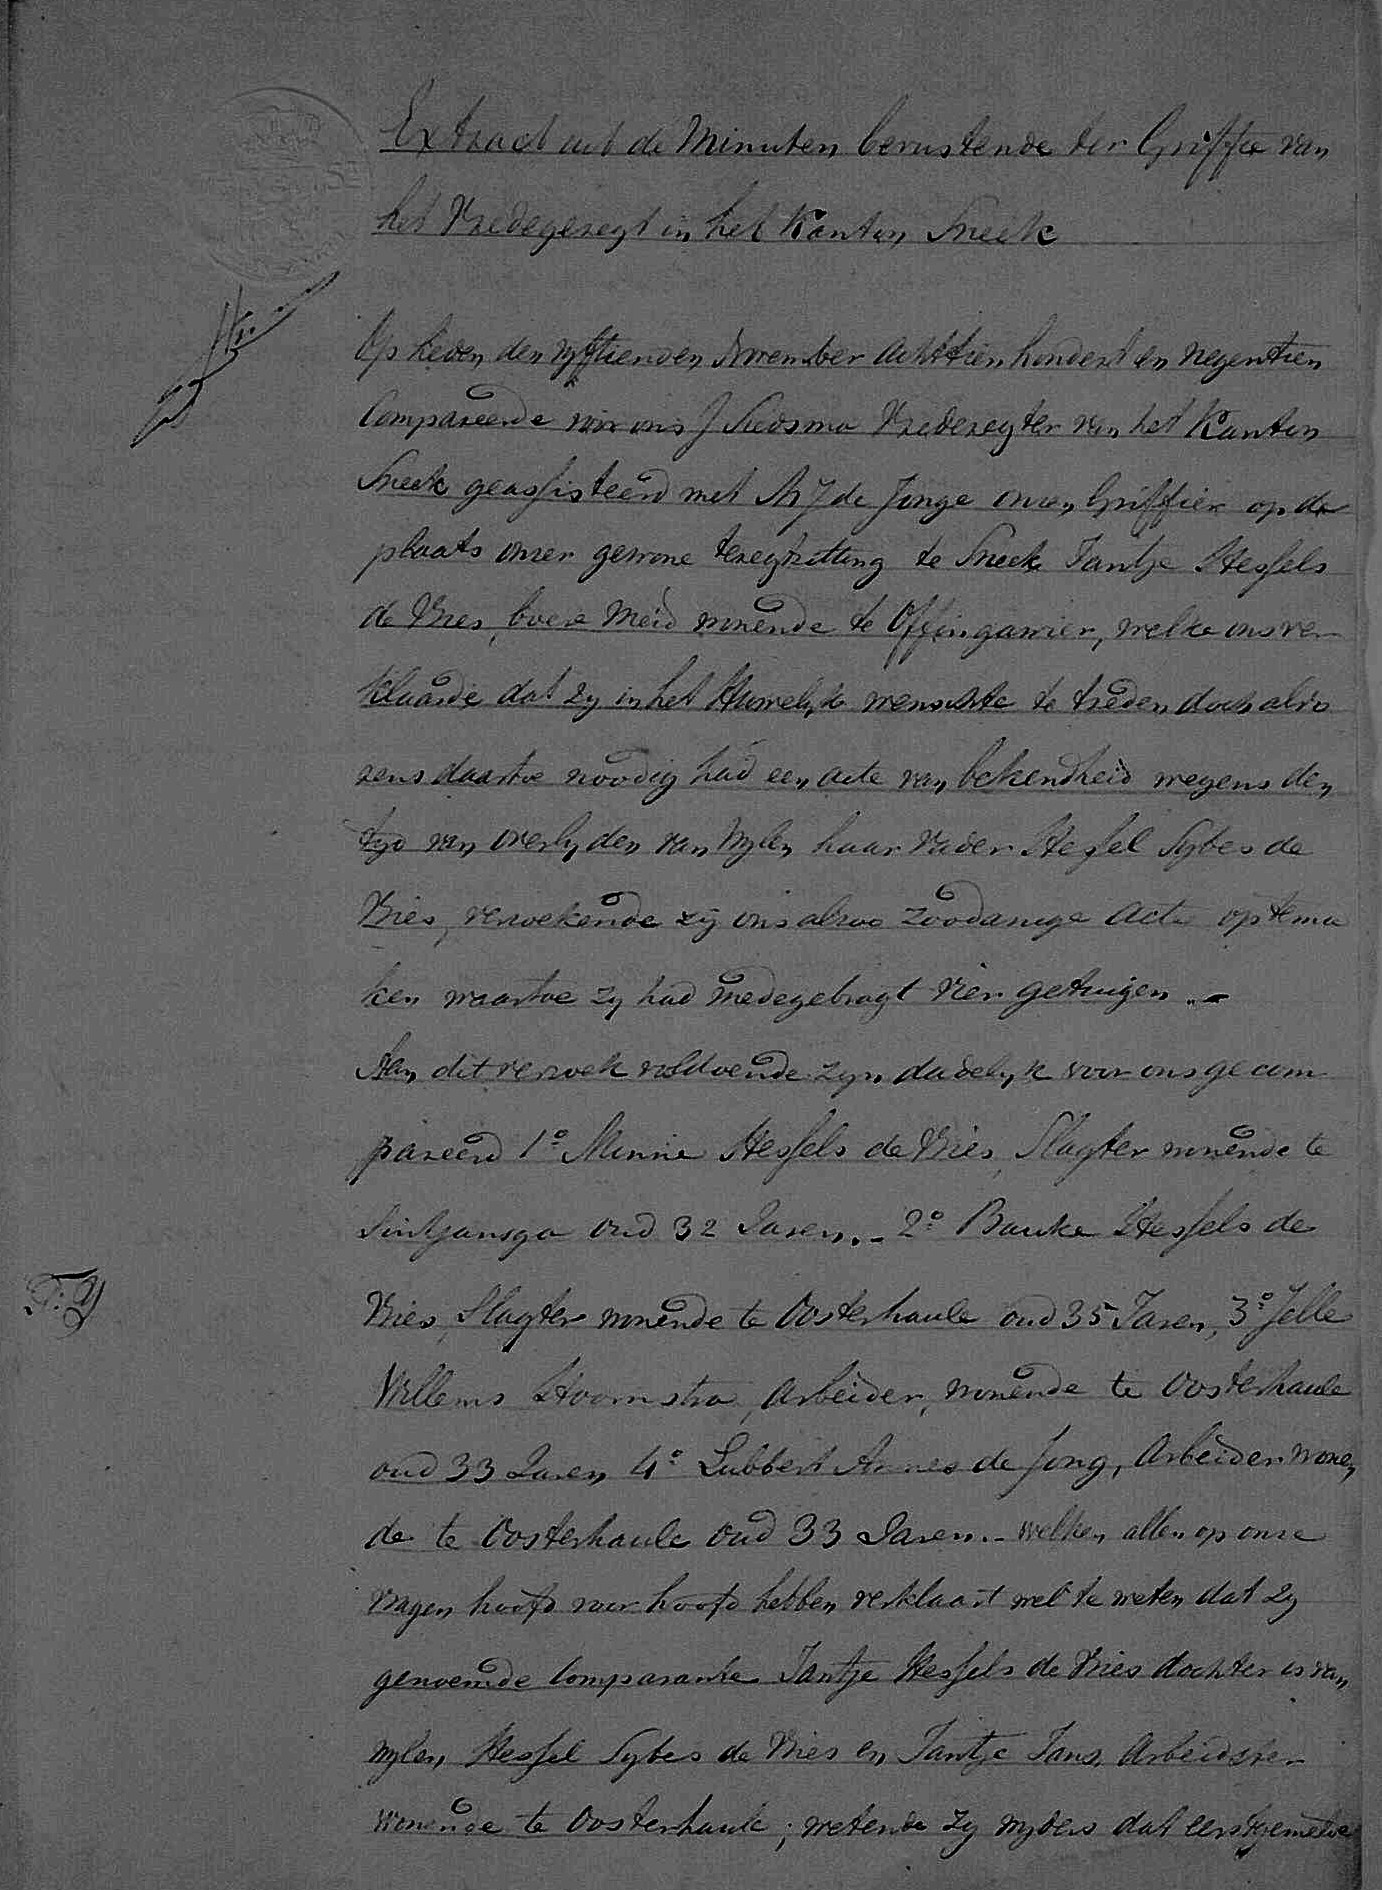 Extract uit de Minuten berustende ter Griffie van
het Vredegeregt in het Kanton Sneek
Op heden den vyftienden November achttien hondert en negentien
Compareerde voor ons J Siedsma Vrederegter van het Kanton
Sneek geassisteerd met de Jonge onzen Griffier op de
plaats onzer gewone teregtzitting te Sneek Jantje Hessels
de Vries, boere Meid wonende te Offingawier, welke ons ver
klaarde dat zy in het Huwelyk wenschte te treden doch alvo
rens daartoe noodig had een acte van bekendheid wegens den
tyd van overlyden van wylen haar vader Hessel Sybes de
Vries, verzoekende zij ons alzoo zoodanige acte op te ma
ken waartoe zy had medegebragt vier getuigen.-
Aan dit verzoek voldoende zyn dadelyk voor ons gecom
pareerd 1o Minne Hessels de Vries, Slagter wonende te
Sintjansga oud 32 Jaren.- 2o Bauke Hessels de
Vries, Slagter wonende te Oosterhaule oud 35 Jaren, 3o Jelle
Willems Hoornstra, Arbeider, wonende te Oosterhaule
oud 33 Jaren 4o Lubbert Annes de Jong, Arbeider wonen
de te Oosterhaule oud 33 Jaren.- welken allen op onze
vragen hoofd voor hoofd hebben verklaart wel te weten dat zy
genoemde Comparante Jantje Hessels de Vries dochter is van
wylen Hessel Sybes de Vries en Jantje Jans, Arbeidster
F: Y
wonende te Oosterhaule; wetende zy wyders dat eerstgemelde